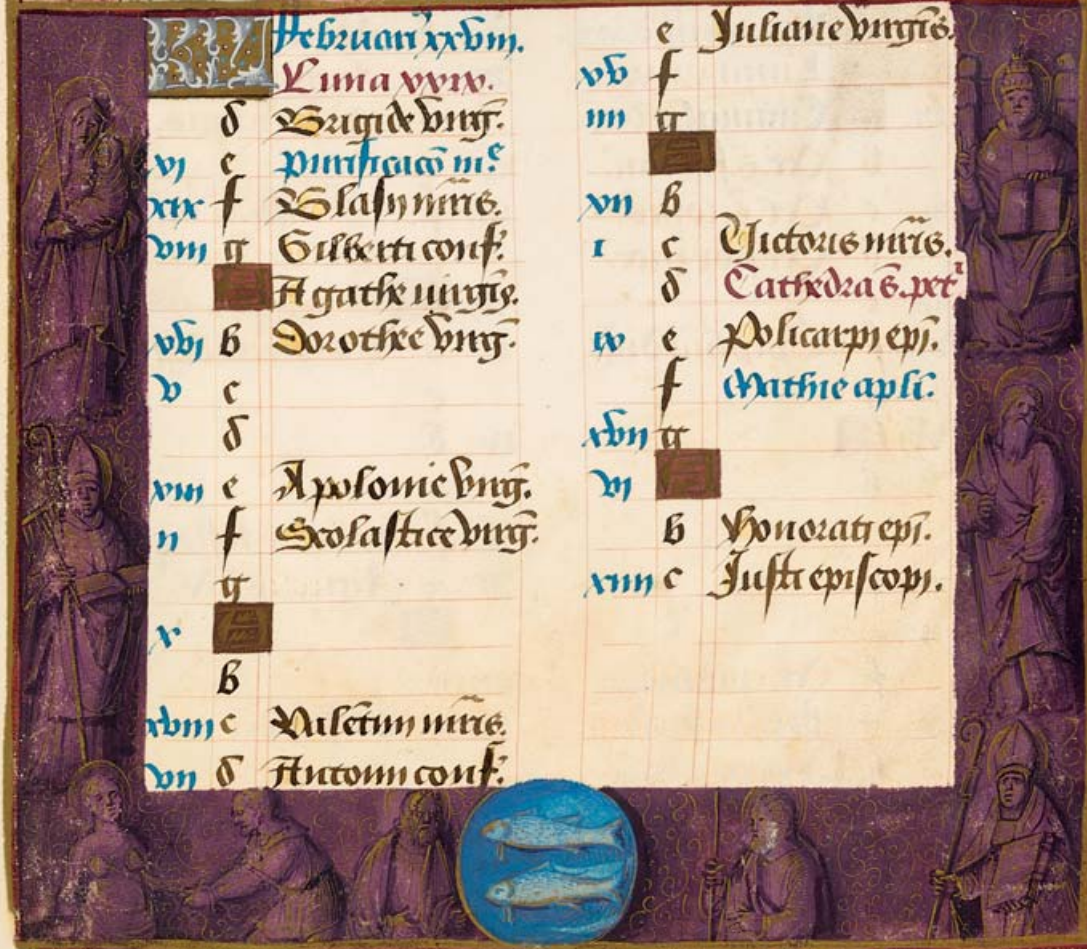 KL Februarii xxviii.
Luna xxix.
d Brigide virḡ.
vi e Purificacō m̄e
xix f Blasii mr̄is.
viii g Gilberti conf.
A Agathe uirgīs.
xvi b Dorothee virḡ.
v c
d
xiii e Apolonie virḡ.
ii f Scolastice virḡ.
g
x A
b
xviii c Valētini mr̄is.
vii d Antonii conf.
e Juliane virgīs.
xv f
iiii g
A
xii b
i c Victoris mr̄is.
d Cathedra s̄. petri
ix e Policarpi epī.
f Mathie apl̄i.
xvii g
vi A
b Honorati epī.
xiiii c Justi episcopi.